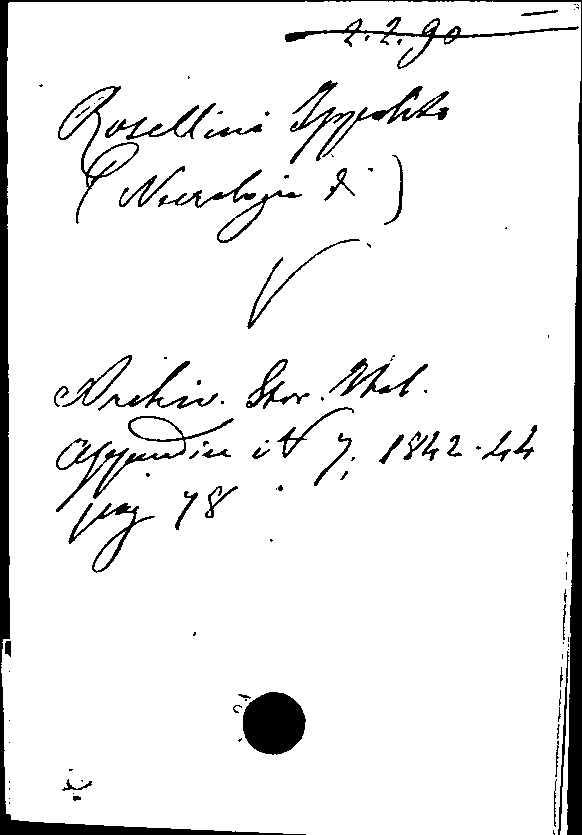 2.2.90
Rosellini Ippolito
(Necrologia di)
V
Archiv. Stor. Ital.
Appendice 7, 1842-44
pag 78